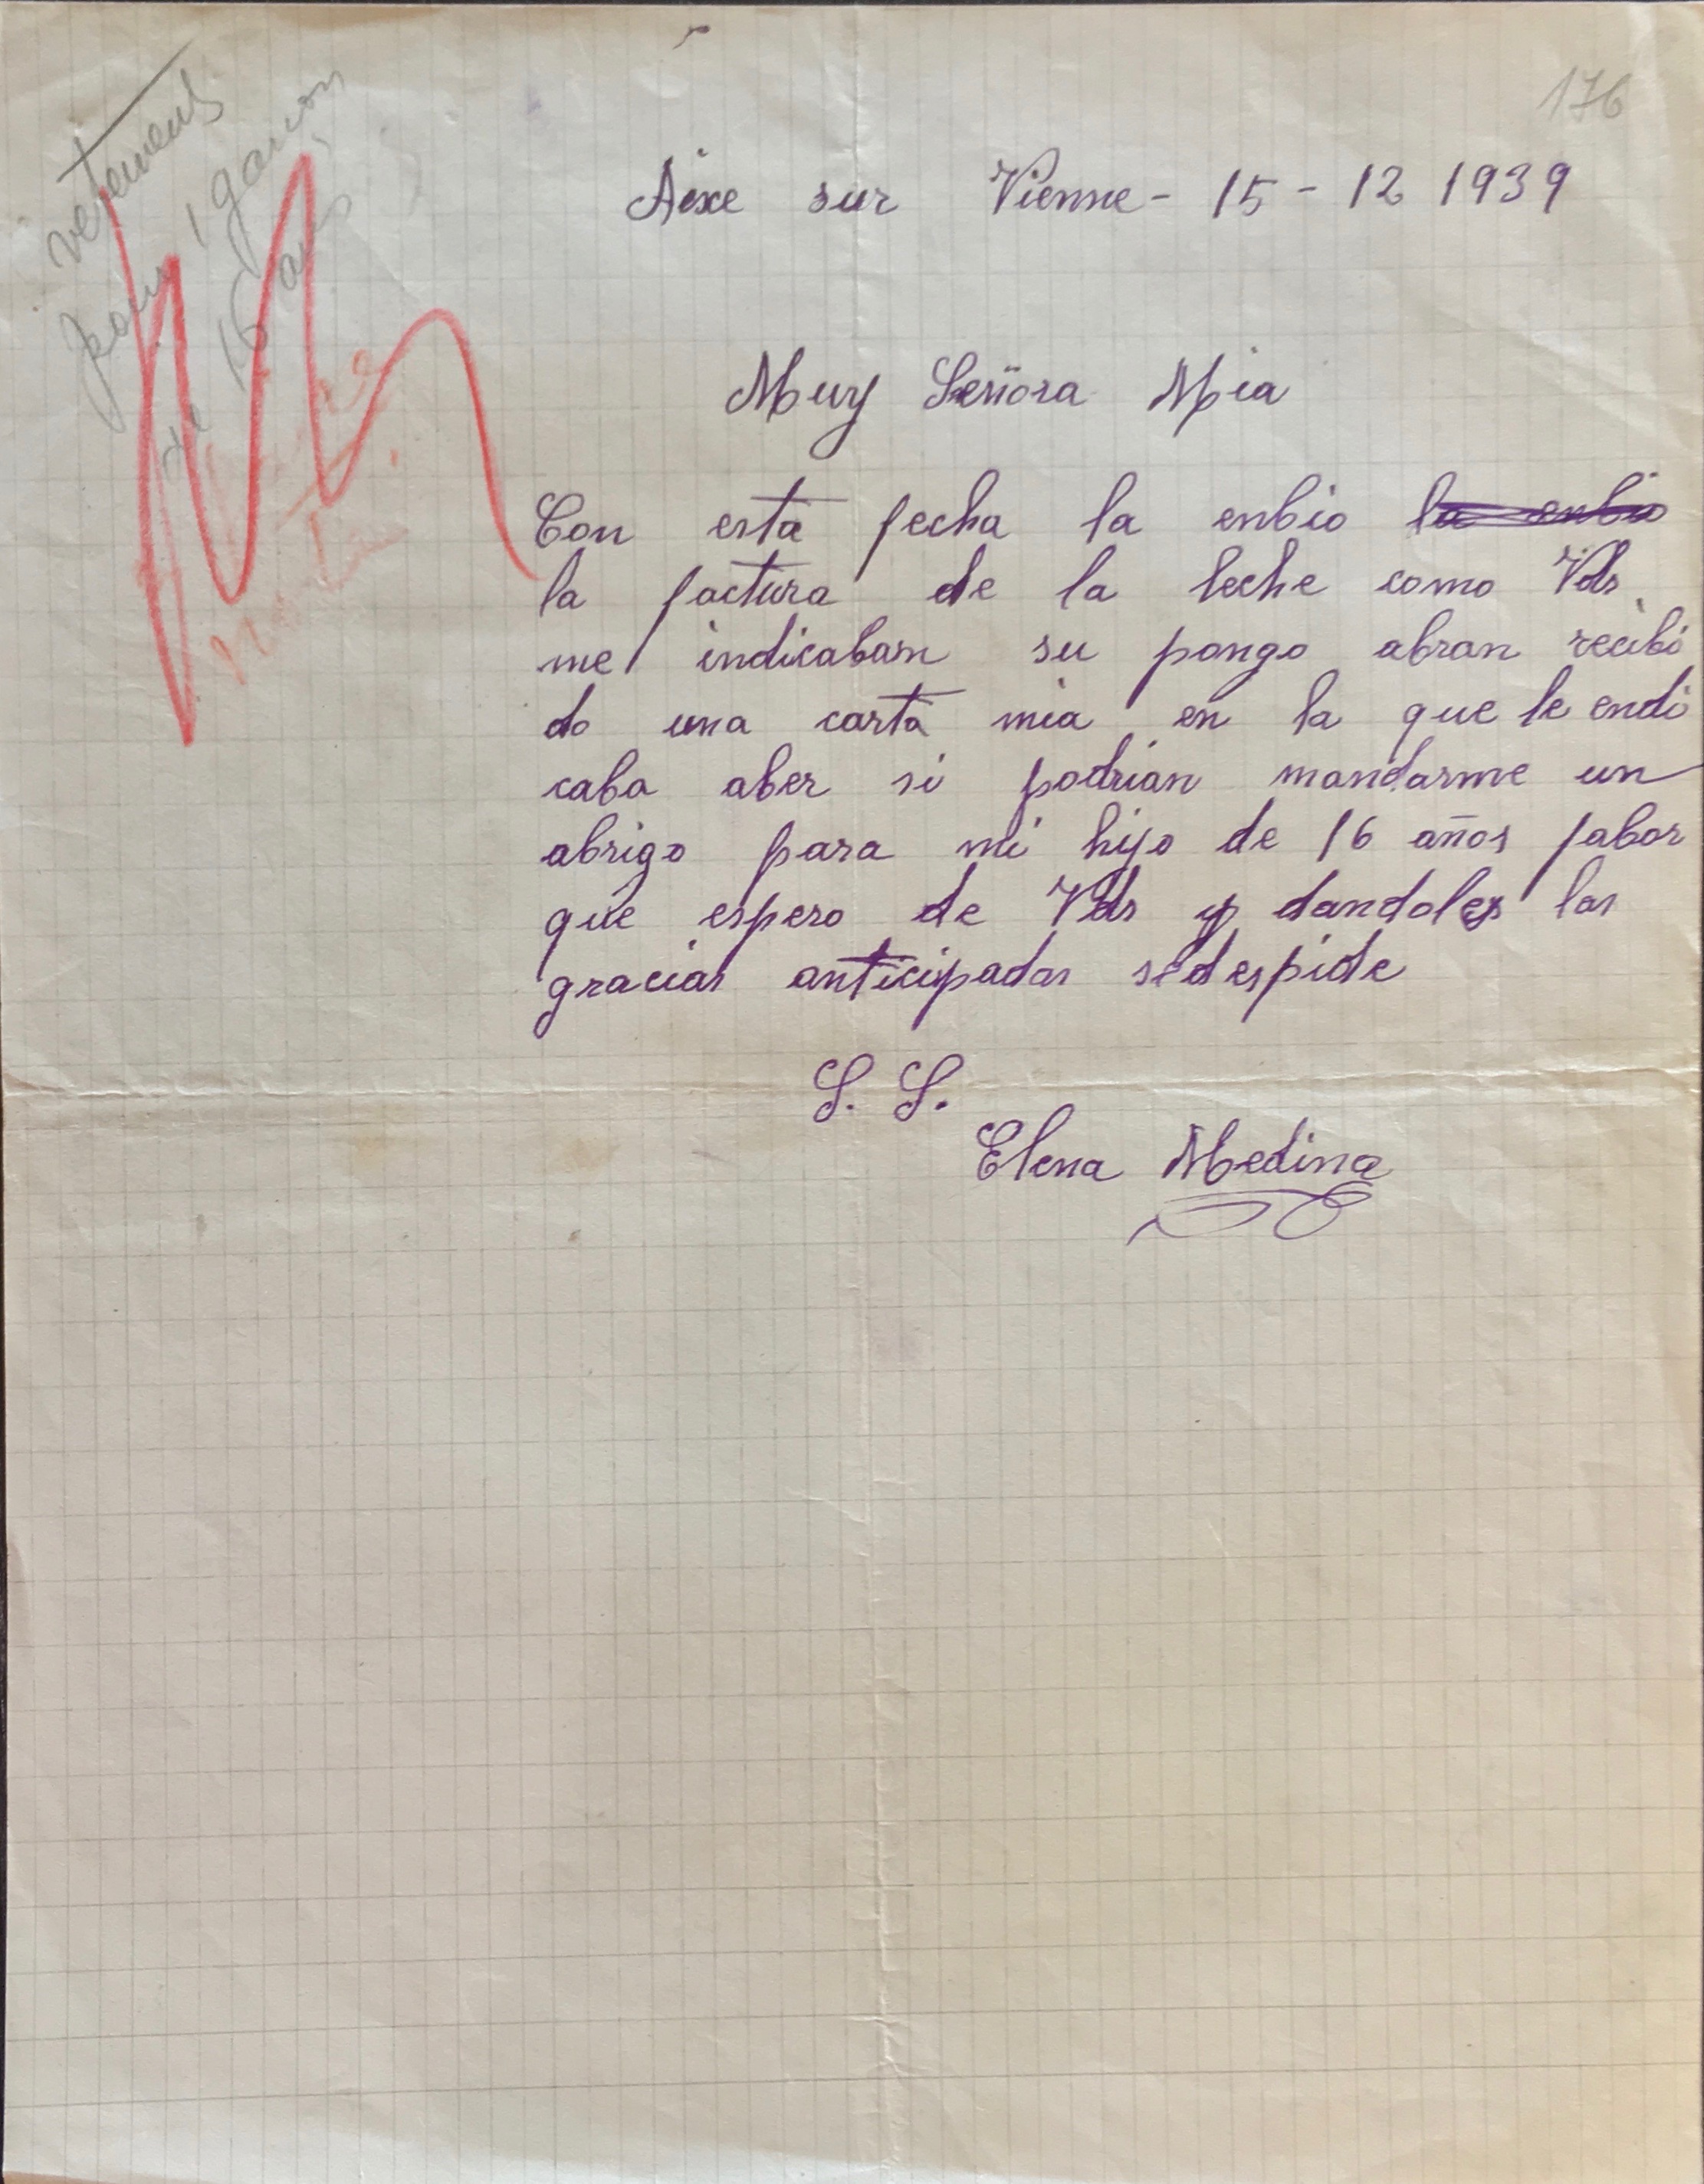 176
vetements
pour 1 garçon
de 16 ans
Aixe sur Vienne - 15 - 12 1939
Muy Señora Mia
Con esta fecha la enbio la enbio
la factura de la leche como Vds
me indicaban su pongo abran recibi
do una carta mia en la que le endi
caba aber si podrian mandarme un
abrigo para mi hijo de 16 años fabor
que espero de Vds y dandoles las
gracias anticipadas sedespide
S. S.
Elena Medina